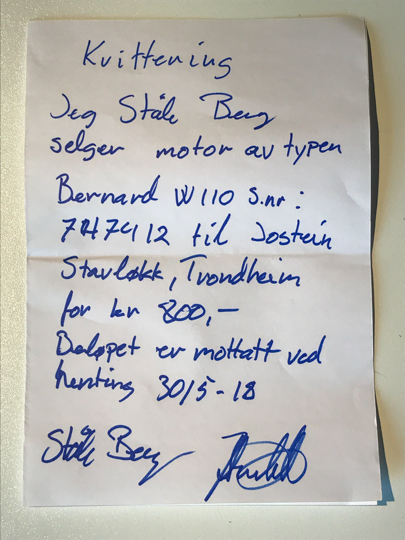 Kvittering
Jeg Ståle Berg
selger motor av typen
Bernard W110 S.nr:
747412 til Jostein
Stavløkk, Trondheim
for kr 800,-
Beløpet er mottatt ved
henting 30/5-18
Ståle Berg